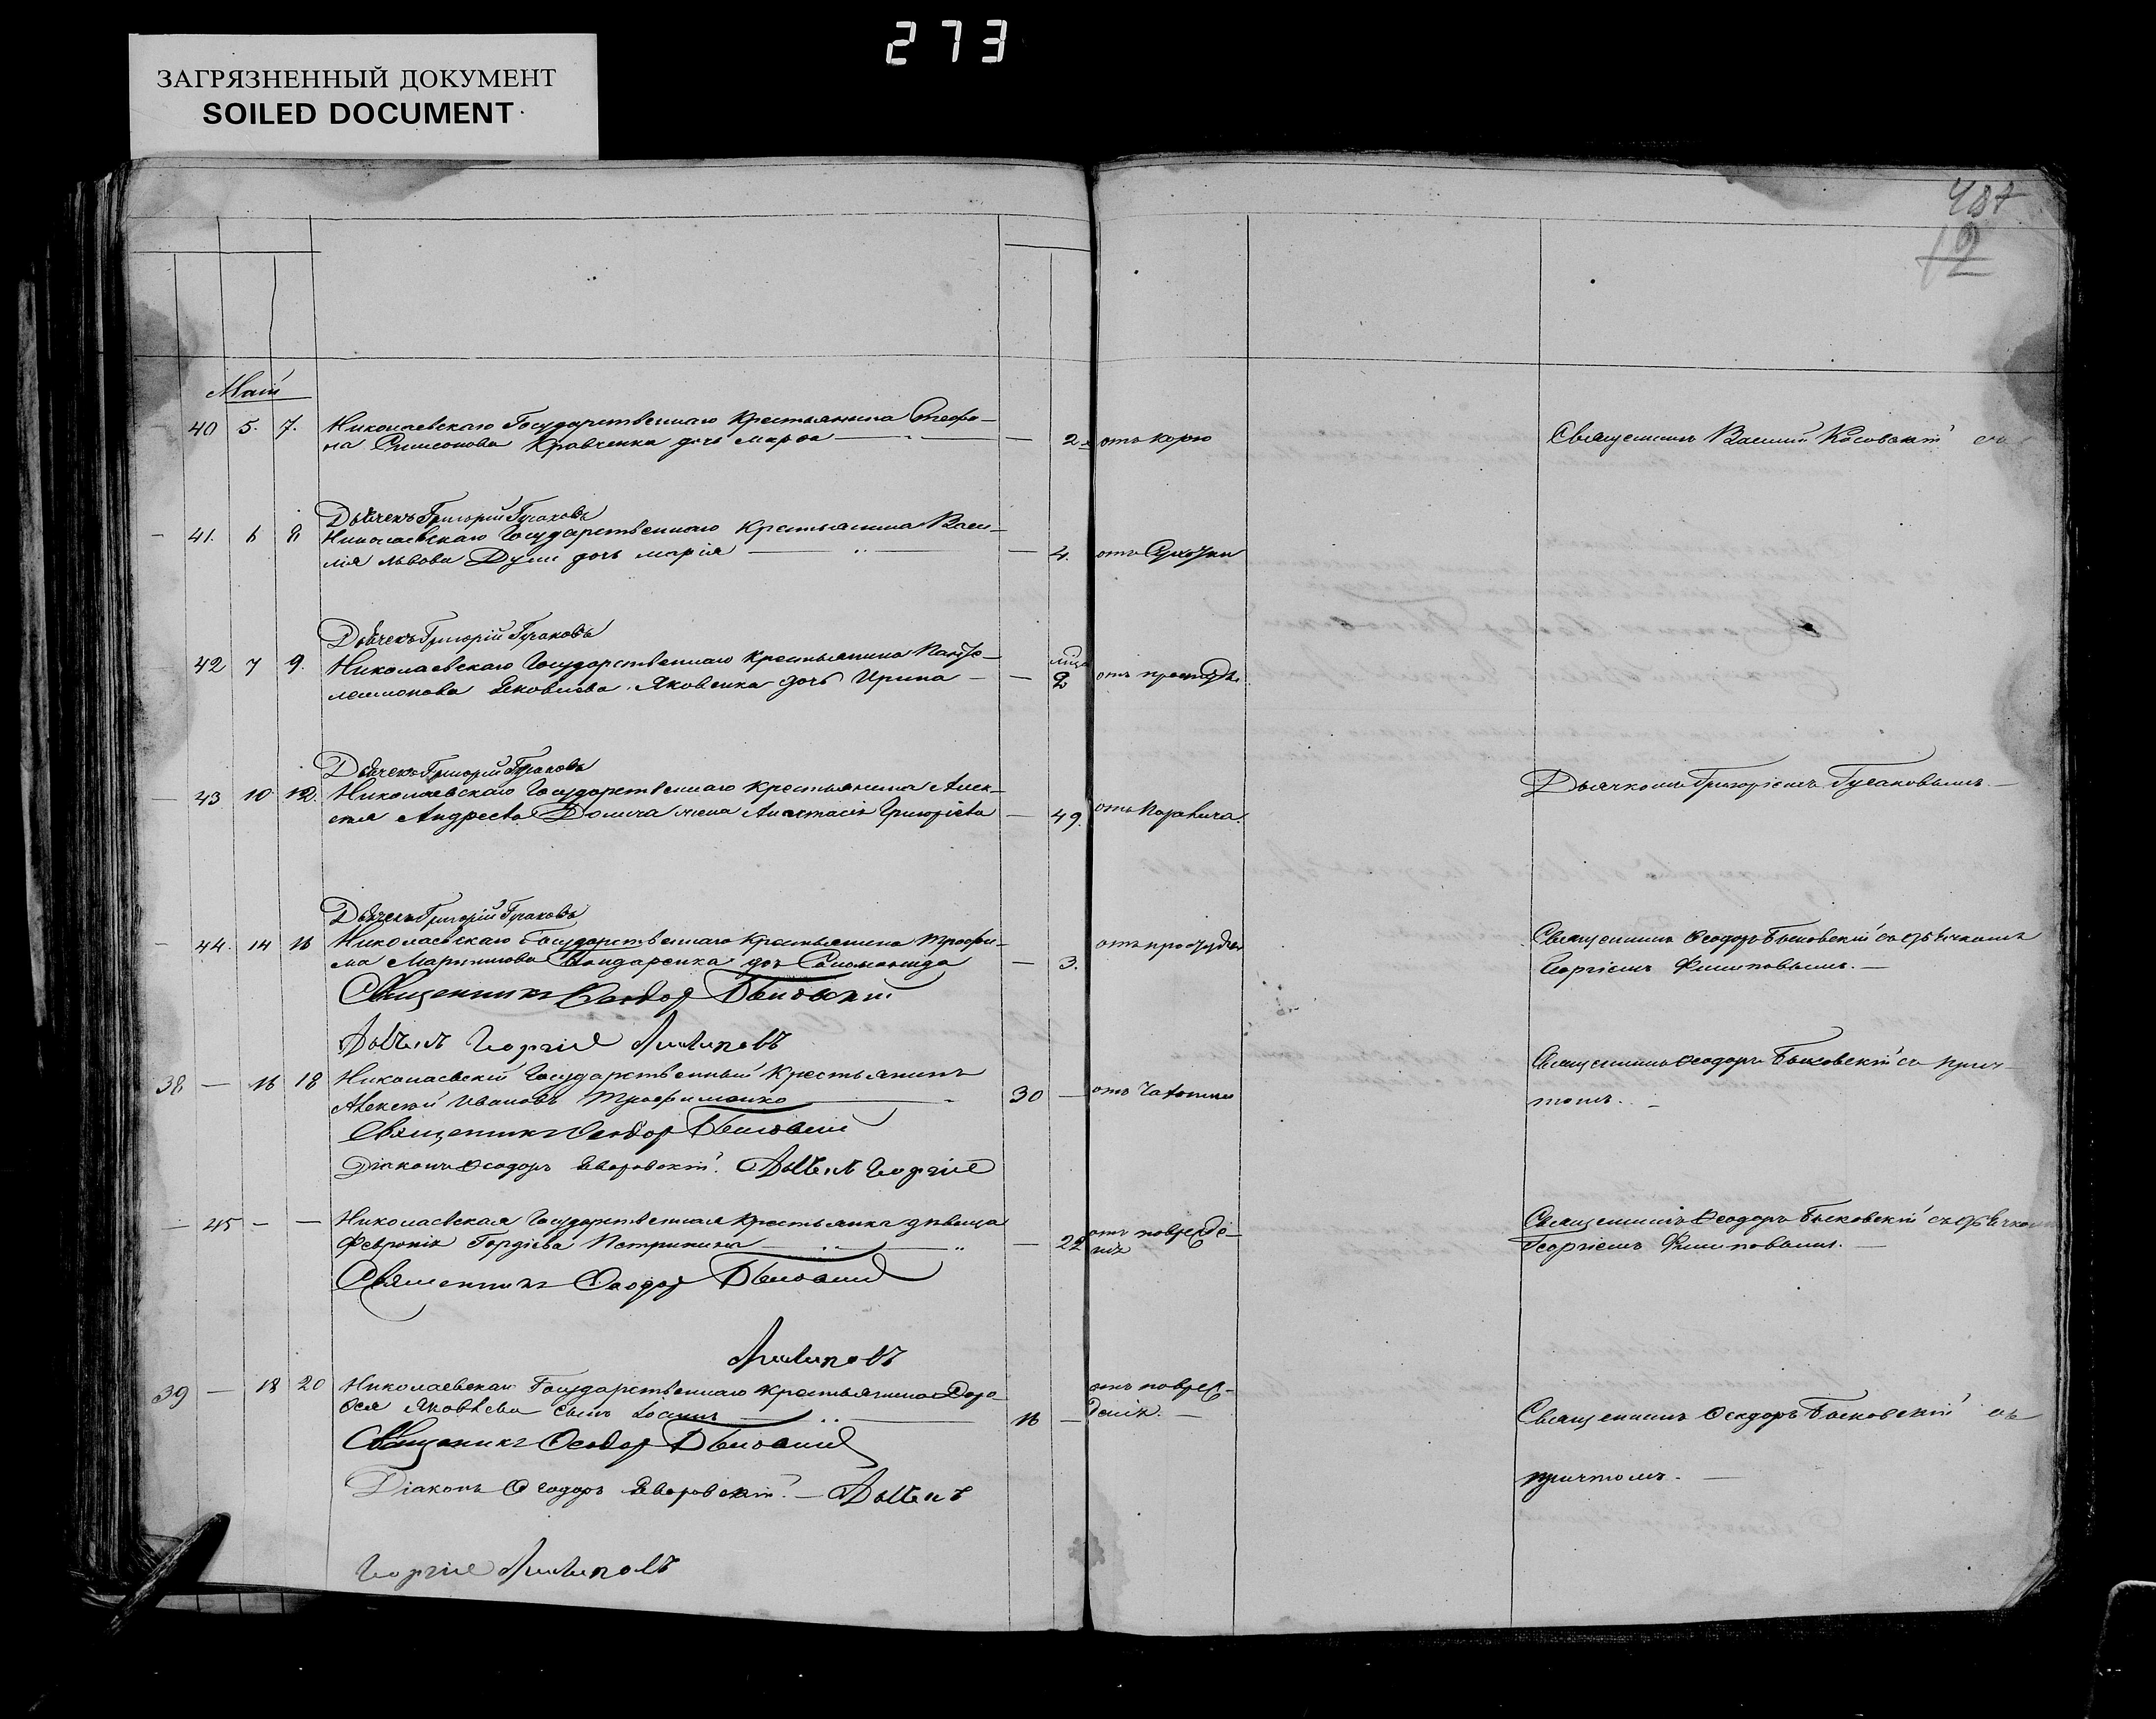 273
ЗАГРЯЗНЕННЫЙ ДОКУМЕНТ
SOILED DOCUMENT
487
Май
40 5. 7. Николаевскаго Государственнаго крестьянина Стефа-
на Симеонова Кравченка дочь Марфа — 2 отъ корю Священникъ Василий Косовский
Дьячекъ Григорій Гусаковъ
41. 6 8 Николаевскаго Государственнаго крестьянина Васи-
лія Львова дочь Марія — 4. отъ
Дьячекъ Григорій Гусаковъ
42 7 9. Николаевскаго Государственнаго крестьянина Панте-
леимонова Яковлева Яковенка дочь Ирина — 2 отъ простуды
Дьячекъ Григорій Гусаковъ
43 10 12. Николаевскаго Государственнаго крестьянина Алек-
сея Андреева жена Анастасія Григоріева — 49. отъ Паралича. Дьячкомъ Григоріемъ Гусаковымъ. —
Дьячекъ Григорій Гусаковъ
44. 14 16 Николаевскаго Государственнаго крестьянина Трофи-
ма Мартинова Бондаренка доч Соломонида — 3. отъ простуды Священникъ Ѳеодоръ Быковскій съ дьячкомъ
Георгіемъ Филиповымъ. —
Священникъ Ѳеодоръ Быковскій
Дьячекъ Георгій Филиповъ
38 — 16 18 Николаевскій Государственный крестьянинъ
Алексѣй Ивановъ Трофименко 30 — отъ Чахотки Священникъ Ѳеодоръ Быковскій съ прич-
томъ. —
Священникъ Ѳеодоръ Быковскій
Діаконъ Ѳеодоръ Яворовскій. Дьячекъ Георгій
— 45 — — Николаевская Государственная крестьянка дѣвица
Февронія Гордіева Петрикина — 22 отъ поврежде-
нія Священникъ Ѳеодоръ Быковскій съ дьячкомъ
Георгіемъ Филиповымъ. —
Священникъ Ѳеодоръ Быковскій
Филиповъ
39 — 18 20 Николаевскаго Государственнаго крестьянина Доро-
ѳея Яковлева сынъ Іоаннъ 16 — отъ повреж-
денія. — Священникъ Ѳеодоръ Быковскій съ
причтомъ. —
Священникъ Ѳеодоръ Быковскій
Діаконъ Ѳеодоръ Яворовскій. — Дьячекъ
Георгій Филиповъ